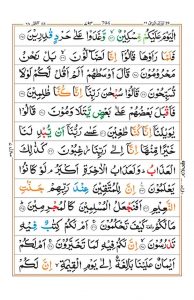 الْيَوْمَ عَلَيْكُمْ مِّسْكِيْنٌ ۙ وَّغَدَوْا عَلٰى حَرْدٍ قٰدِرِيْنَ
فَلَمَّا رَاَوْهَا قَالُوْۤا اِنَّا لَضَآلُّوْنَ ۙ بَلْ نَحْنُ
مَحْرُوْمُوْنَ قَالَ اَوْسَطُهُمْ اَلَمْ اَقُلْ لَّكُمْ لَوْلَا
تُسَبِّحُوْنَ قَالُوْا سُبْحٰنَ رَبِّنَاۤ اِنَّا كُنَّا ظٰلِمِيْنَ
فَاَقْبَلَ بَعْضُهُمْ عَلٰى بَعْضٍ يَّتَلَاوَمُوْنَ قَالُوْا
يٰوَيْلَنَاۤ اِنَّا كُنَّا طٰغِيْنَ عَسٰى رَبُّنَاۤ اَنْ يُّبْدِلَنَا
خَيْرًا مِّنْهَاۤ اِنَّاۤ اِلٰى رَبِّنَا رٰغِبُوْنَ كَذٰلِكَ
الْعَذَابُ ؕ وَلَعَذَابُ الْاٰخِرَةِ اَكْبَرُ ۘ لَوْ كَانُوْا
يَعْلَمُوْنَ اِنَّ لِلْمُتَّقِيْنَ عِنْدَ رَبِّهِمْ جَنّٰتِ
النَّعِيْمِ اَفَنَجْعَلُ الْمُسْلِمِيْنَ كَالْمُجْرِمِيْنَ
مَا لَكُمْ كَيْفَ تَحْكُمُوْنَ اَمْ لَكُمْ كِتٰبٌ فِيْهِ
تَدْرُسُوْنَ اِنَّ لَكُمْ فِيْهِ لَمَا تَخَيَّرُوْنَ اَمْ لَكُمْ
اَيْمَانٌ عَلَيْنَا بَالِغَةٌ اِلٰى يَوْمِ الْقِيٰمَةِ ۙ اِنَّ لَكُمْ